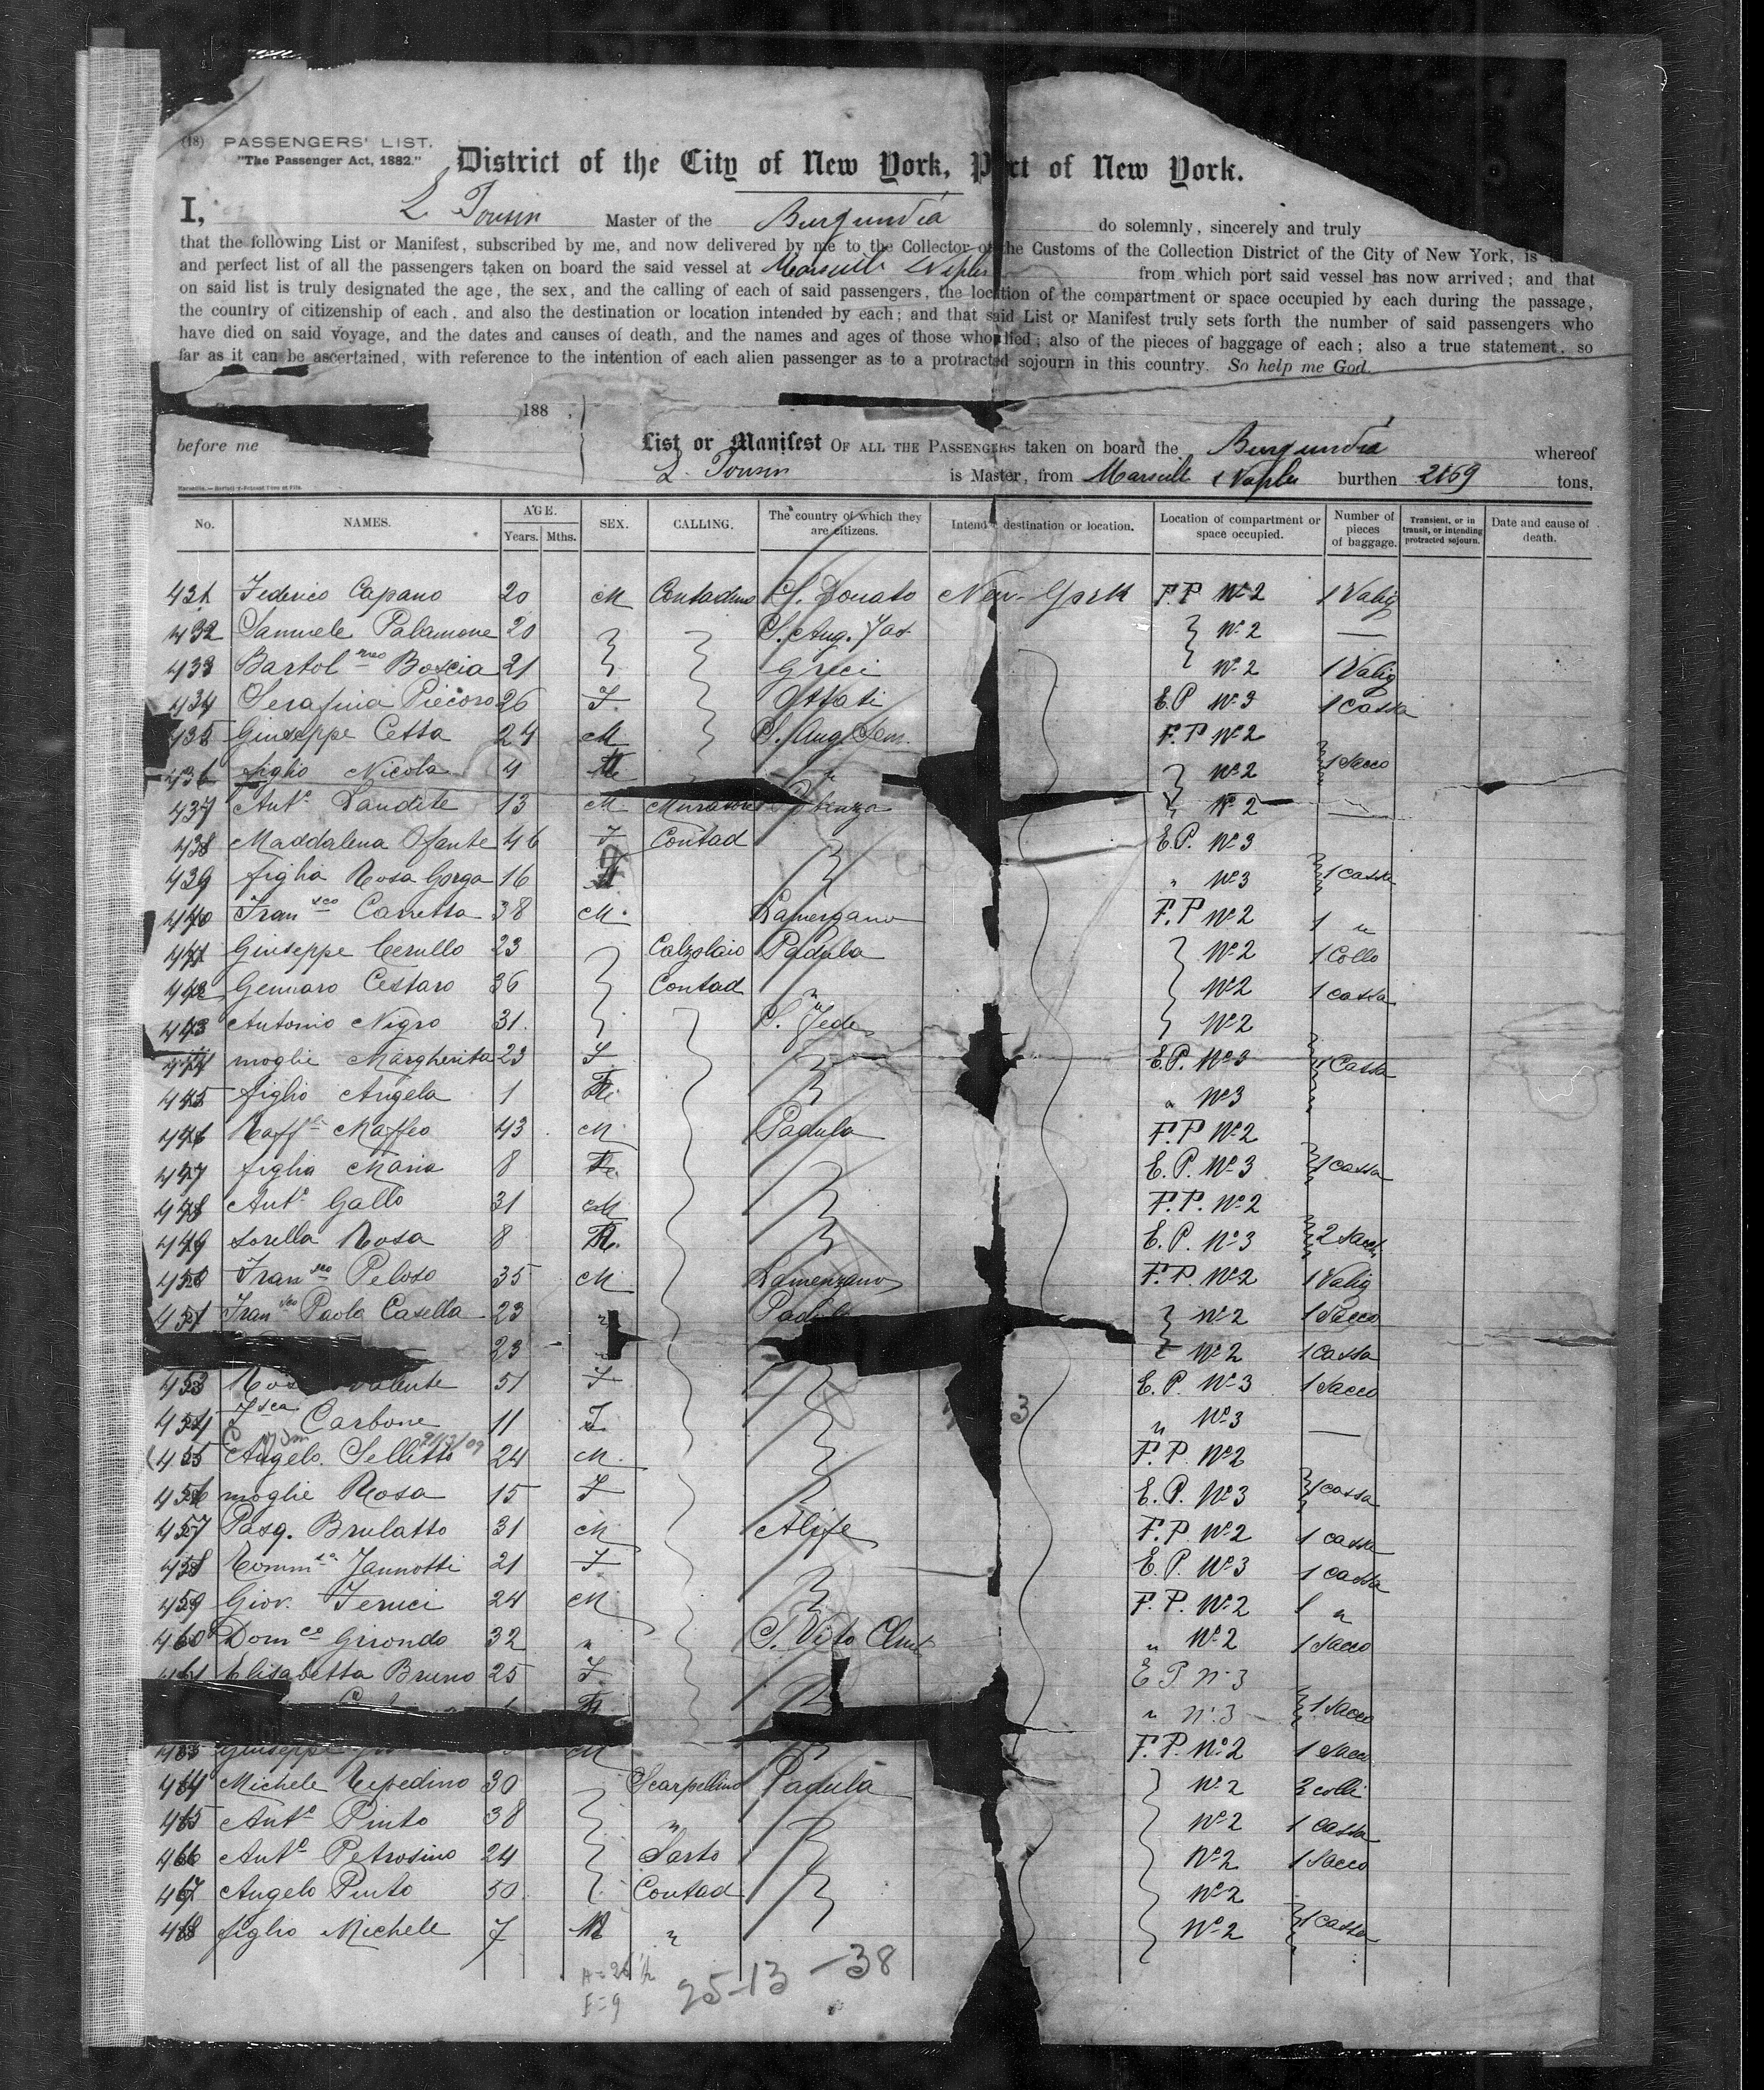 (18) PASSENGERS' LIST.
"The Passenger Act, 1882."
District of the City of New York, Port of New York.
I, L Tousin Master of the Burgundia do solemnly, sincerely and truly
that the following List or Manifest, subscribed by me, and now delivered by me to the Collector of the Customs of the Collection District of the City of New York, is
and perfect list of all the passengers taken on board the said vessel at Marseille Naples from which port said vessel has now arrived; and that
on said list is truly designated the age, the sex, and the calling of each of said passengers, the location of the compartment or space occupied by each during the passage,
the country of citizenship of each, and also the destination or location intended by each; and that said List or Manifest truly sets forth the number of said passengers who
have died on said voyage, and the dates and causes of death, and the names and ages of those who died; also of the pieces of baggage of each; also a true statement, so
far as it can be ascertained, with reference to the intention of each alien passenger as to a protracted sojourn in this country. So help me God.
188
before me
List or Manifest OF ALL THE PASSENGERS taken on board the Burgundia whereof
L. Tousin is Master, from Marseill & Naples burthen 2169 tons,
No. NAMES. AGE. Years. Mths. SEX. CALLING. The country of which they are citizens. Intended destination or location. Location of compartment or space occupied. Number of pieces of baggage. Transient, or in transit, or intending protracted sojourn. Date and cause of death.
431 Federico Capano 20 M Contadino S. Donato New-York F.P. No 2 1 Valig
432 Samuele Palamone 20 No 2 —
433 Bartolmeo Boscia 21 Greci No 2 1 Valig
434 Serafina Piecoro 26 F. Ottati E.P No 3 1 Cassa
435 Giuseppe Cessa 24 M F.P No 2
436 figlio Nicola 4 " No 2 1 Sacco
437 Anto Laudite 13 M Muratore Potenza No 2 —
438 Maddalena Ofante 46 F Contad E.P. No 3
439 figlia Rosa Gorga 16 " No 3 1 cassa
440 Fransco Carretta 38 M. F.P No 2 1 "
441 Giuseppe Cerullo 23 Calzolaio Padula No 2 1 Collo
442 Gennaro Cestaro 36 Contad " No 2 1 cassa
443 Antonio Nigro 31. No 2
444 moglie Margherita 23 F E.P. No 3 1 Cassa
445 figlio Angela 1 " No 3
446 Raffle Maffeo 43 M Padula F.P No 2
447 figlia Maria 8 E.P. No 3 1 cassa
448 Anto Gallo 31 M F.P. No 2
449 sorella Rosa 8 E.P. No 3 2 Sacchi
450 Fransco Peloso 35 M F.P. No 2 1 Valig
451 Fransco Paolo Casella 23 " Padula No 2 1 Sacco
23 No 2 1 Cassa
453 Valente 51 F E.P. No 3 1 Sacco
454 Fsca Carbone 11 F " No 3 —
455 Angelo Sellitto 24 M. F.P. No 2
456 moglie Rosa 15 F E.P. No 3 1 cassa
457 Pasq. Brulatto 31 M Alife F.P No 2 1 cassa
458 Tommsa Jannotti 21 F. E.P. No 3 1 cassa
459 Giov. Feruci 24 M F.P. No 2 1 "
460 Domco Girondo 32 " S. Vito " No 2 1 Sacco
461 Elisabetta Bruno 25 F. E P No 3
" No 3 1 Sacco
463 Giuseppe M F.P. No 2 1 Sacco
464 Michele Tepedino 30 Scarpellino Padula No 2 2 colli
465 Anto Pinto 38 " No 2 1 cassa
466 Anto Petrosino 24 Sarto No 2 1 Sacco
467 Angelo Pinto 50 Contad No 2
468 figlio Michele 7 M " No 2 1 Cassa
25-13 - 38